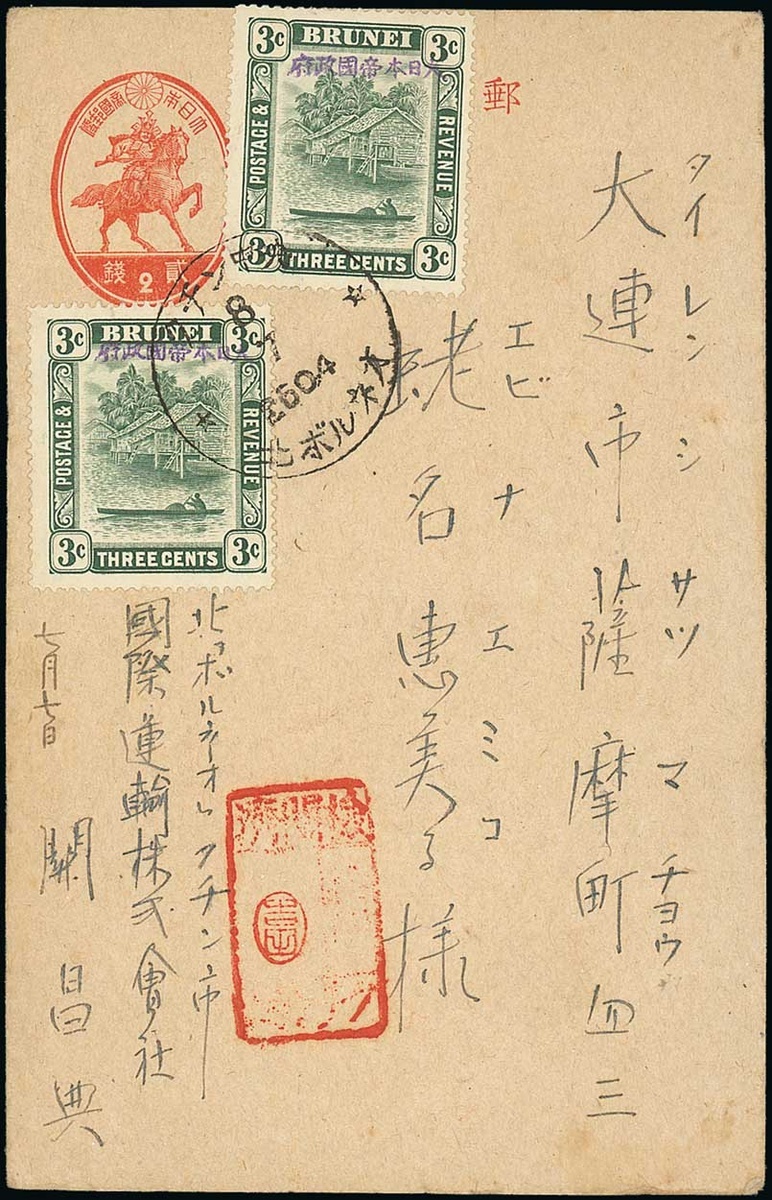 郵
大日本帝國郵便
貳錢
2
3c BRUNEI 3c
大日本帝國政府
POSTAGE & REVENUE
3c THREE CENTS 3c
3c BRUNEI 3c
大日本帝國政府
POSTAGE & REVENUE
3c THREE CENTS 3c
チン
8
2604
北ボルネオ
タイレンシ サツマチヨウ
大連市薩摩町四三
エビナ エミコ
蛯名惠美子様
検閲済
北ボルネオクチン市
國際運輸株式會社
七月七日
關昌典